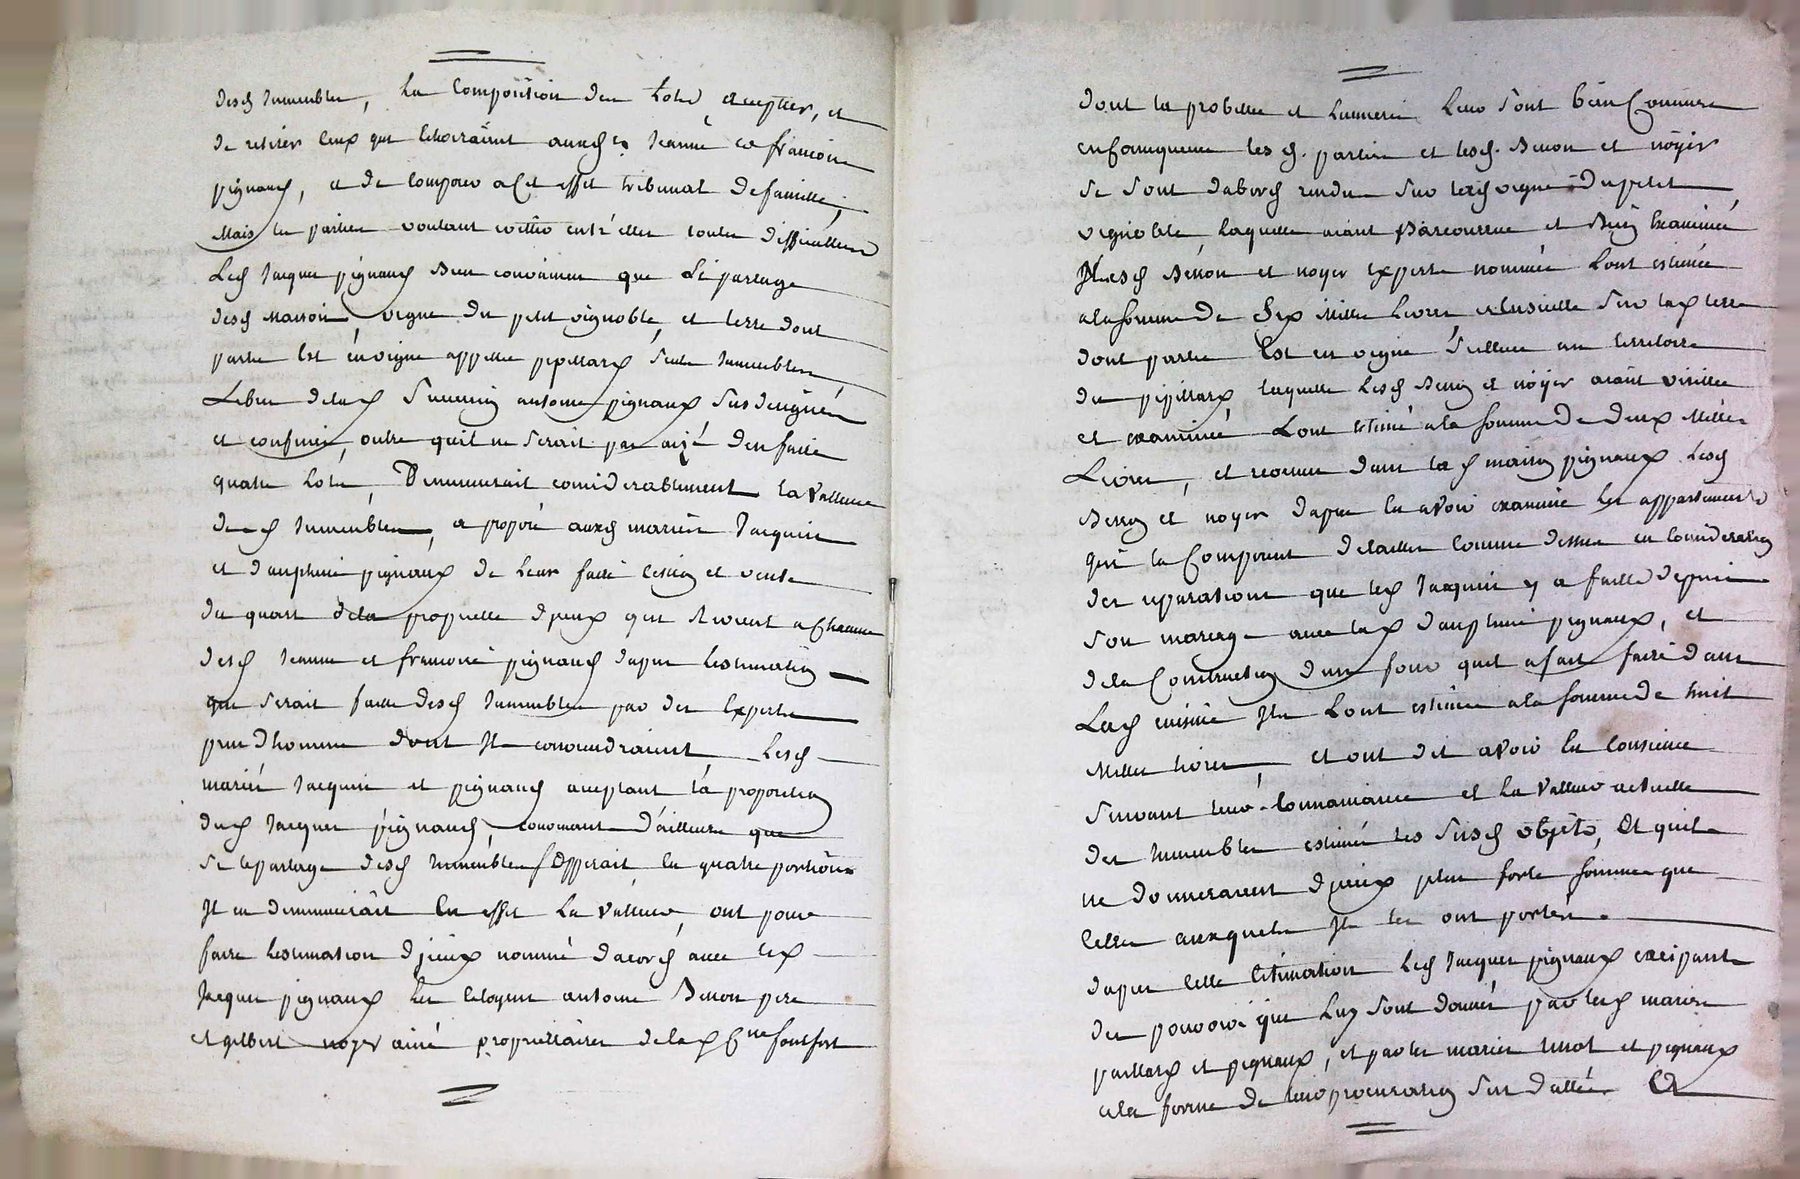 desd immeubles, la Composition des Lots, accepter, et
de retirer ceux qui echoiraient auxd. Jeanne et francoise
pignaud, et de composer a cet effet tribunal de famille,
Mais les parties voulant entr'elles toutes difficultées
Led Jacques pignaud bien convaincu que le partage
desd maison, vigne du petit vignoble, et terre dont
partie Est en vigne appellée pepillard, seuls immeubles
de lad succession antoine pignaux susdesignés
et confinés, outre quil ne serait pas aizé d'en faire
quatre Lots, Diminuerait considerablement la Valleur
desd immeubles, a proposé auxd mariés Jacquin
et dauphine pignaux de Leur faire cession et vente
du quart de la proprietté d'iceux qui revient a Chacune
desd Jeanne et francoise pignaud dapres Lestimation
qui serait faite desd immeubles par des Experts
prud'hommes dont Ils conviendraient, Lesd
mariés Jacquin et pignaud acceptant la proposition
dud Jacques pignaud, convenant d'ailleurs que
si le partage desd immeubles s'opperait en quatre portions
Il en diminuerait En effet La valleur, ont pour
faire Lestimation d'iceux nommé dacord avec led
Jacques pignaux les Citoyens antoine Benon pere
et gilbert noyer ainé propriettaires de lad Cne fontfort
dont la probittée et Lumieres Leur sont bien Connues
en consequence lesd. parties et lesd. Benon et nöyer
se sont dabord rendus sur lad vigne du petit
vignoble, Laquelle aiant parcourrue et Bien Examinée
Lesd Benon et noyer Experts nommés Lont estimée
a la somme de Six Mille Livres et ensuitte sur lad terre
dont partie Est en vigne scittuée au territoire
du pipillard laquelle Lesd Benon et nöyer aiant visittée
et examinée Lont Estimé a la somme de deux Milles
Livres, et revenus dans lad maison pignaux Lesd
Benon et noyer dapres en avoir examiné les appartements
qui la Composent detaillés comme dessus en consideration
des reparations que led Jacquin y a faitte depuis
son mariage avec lad dauphine pignaux, et
de la Construction d'un four quil a fait faire dans
Lad cuisine Ils Lont estimée a la somme de huit
Milles livres, et ont dit avoir En Conscience
suivant leur Connaissance et La Valleur actuelle
des immeubles estimé les susd objets, Et quils
ne donneraient d'iceux plus forte somme que
Celles auxquels Ils les ont portés.
dapres cette Estimation Led Jacques pignaux excipant
des pouvoirs que Luy sont donnés par lesd mariés
paillard et pignaux, et par les mariés et pignaux
a la forme de leur procuration sus dattée Et